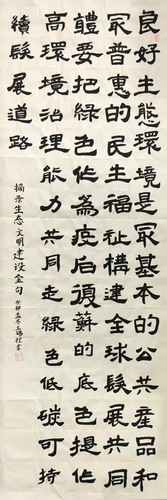 良好生態環境是冣基本的公共產品和
冣普惠的民生福祉構建全球髮展共同
體要把綠色作為疫后復蘇的底色提
高環境治理能力共同走綠色低碳可持
續髮展道路
摘录生态文明建设金句
癸卯孟冬王書